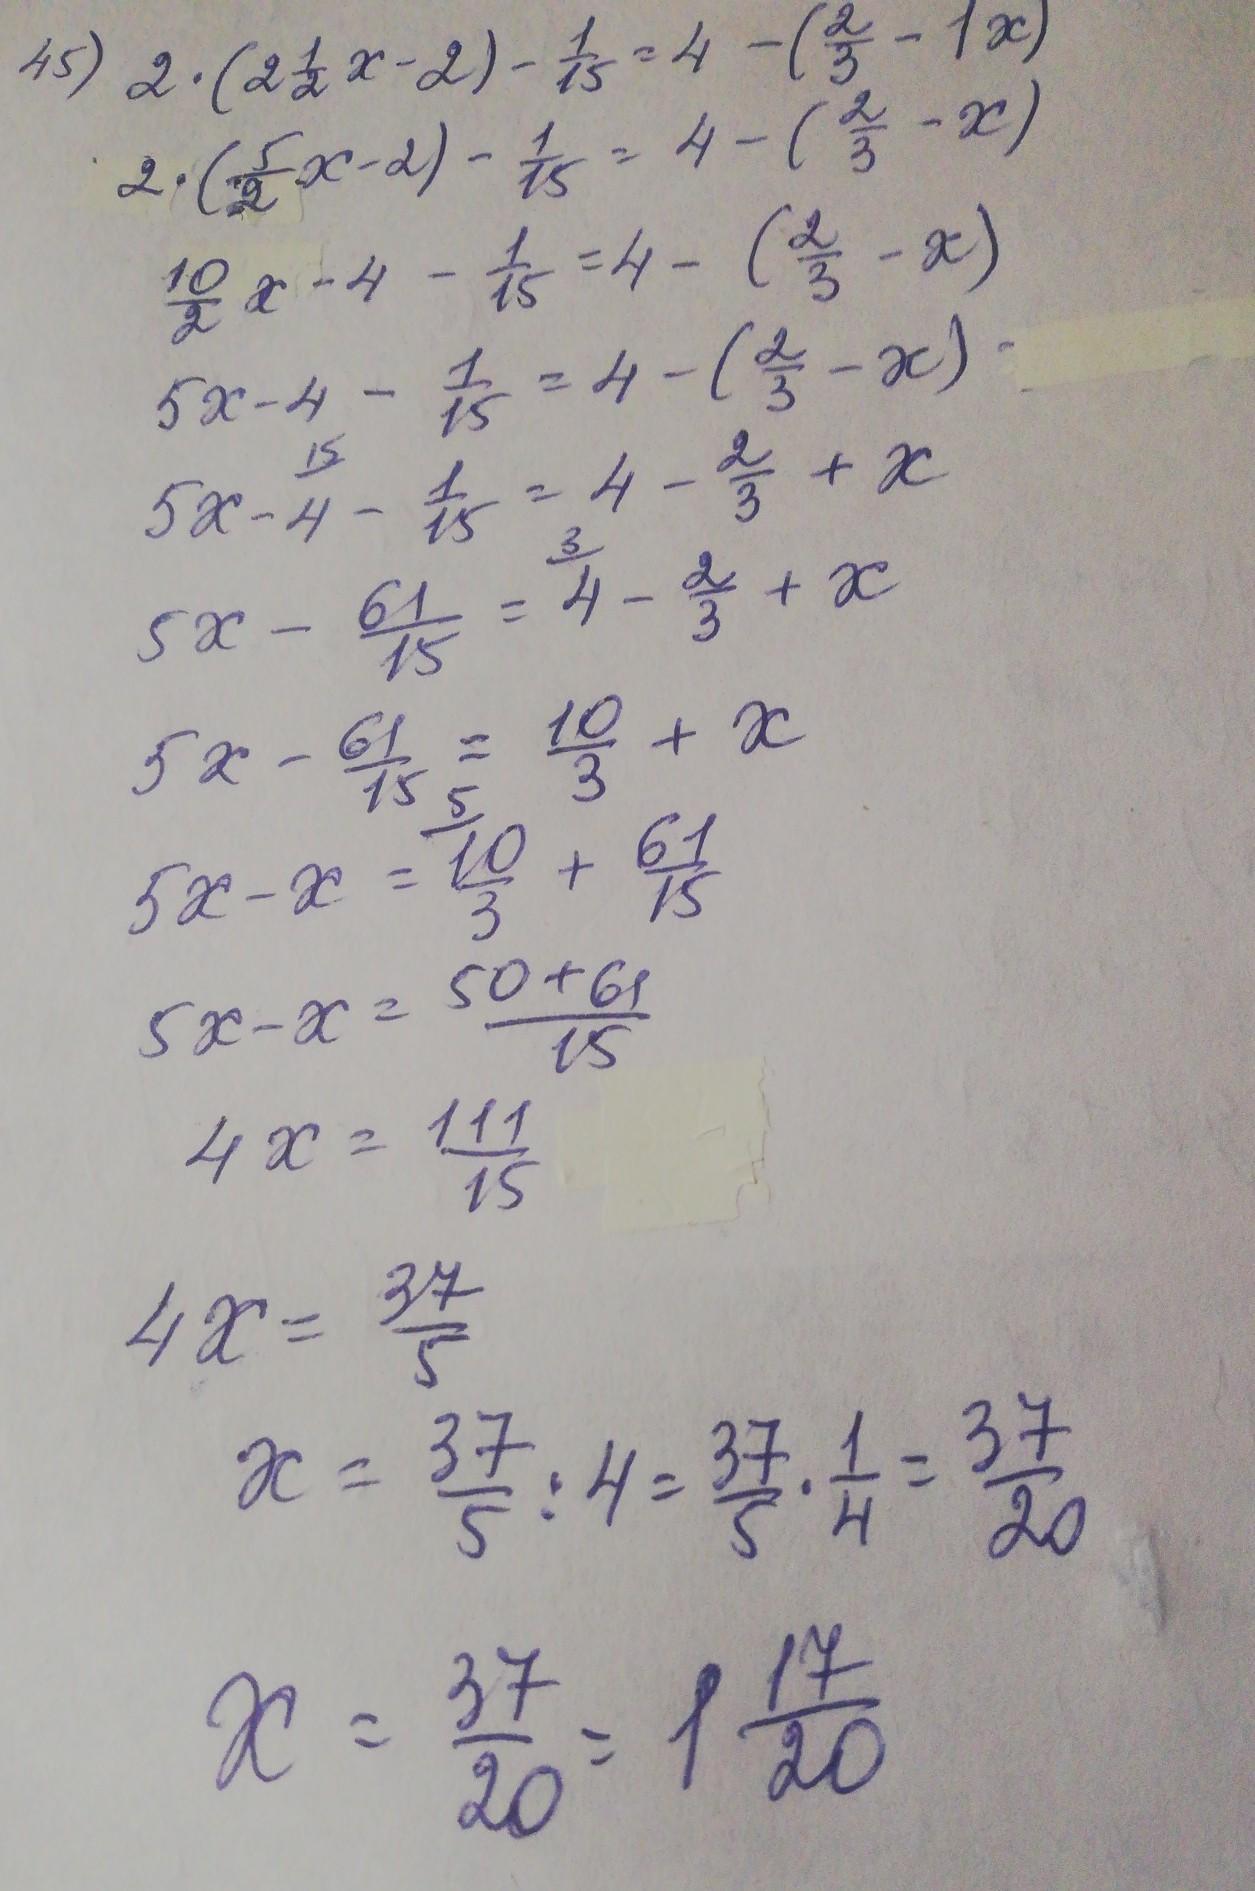 45) 2·(2 1/2 x - 2) - 1/15 = 4 - (2/3 - 1x)
2·(5/2 x - 2) - 1/15 = 4 - (2/3 - x)
10/2 x - 4 - 1/15 = 4 - (2/3 - x)
5x - 4 - 1/15 = 4 - (2/3 - x) -
15
5x - 4 - 1/15 = 4 - 2/3 + x
3
5x - 61/15 = 4 - 2/3 + x
5x - 61/15 = 10/3 + x
5
5x - x = 10/3 + 61/15
5x - x = 50+61/15
4x = 111/15
4x = 37/5
x = 37/5 : 4 = 37/5 · 1/4 = 37/20
x = 37/20 = 1 17/20